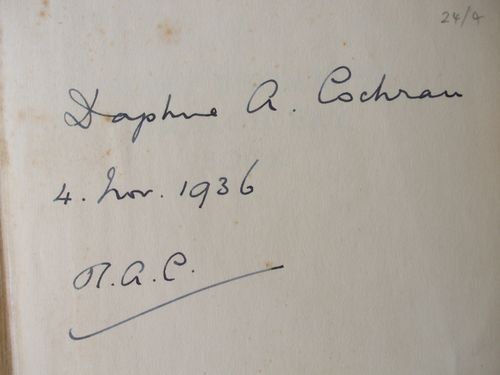 24/9
Daphne A. Cochran
4. Nov. 1936
R.A.C.